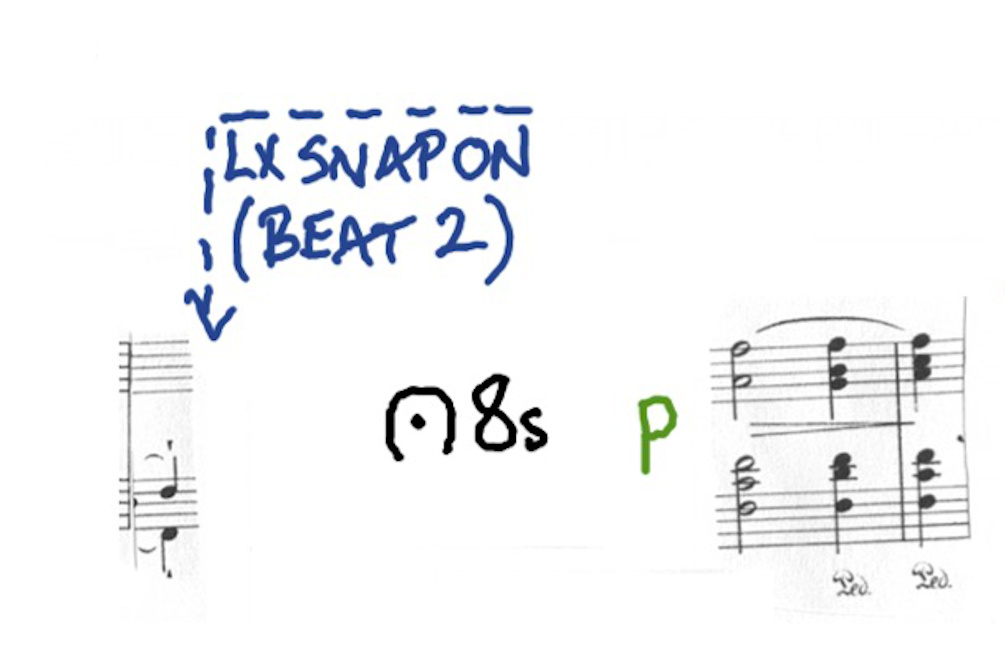 LX SNAP ON
(BEAT 2)
8s
p
Ped. Ped.